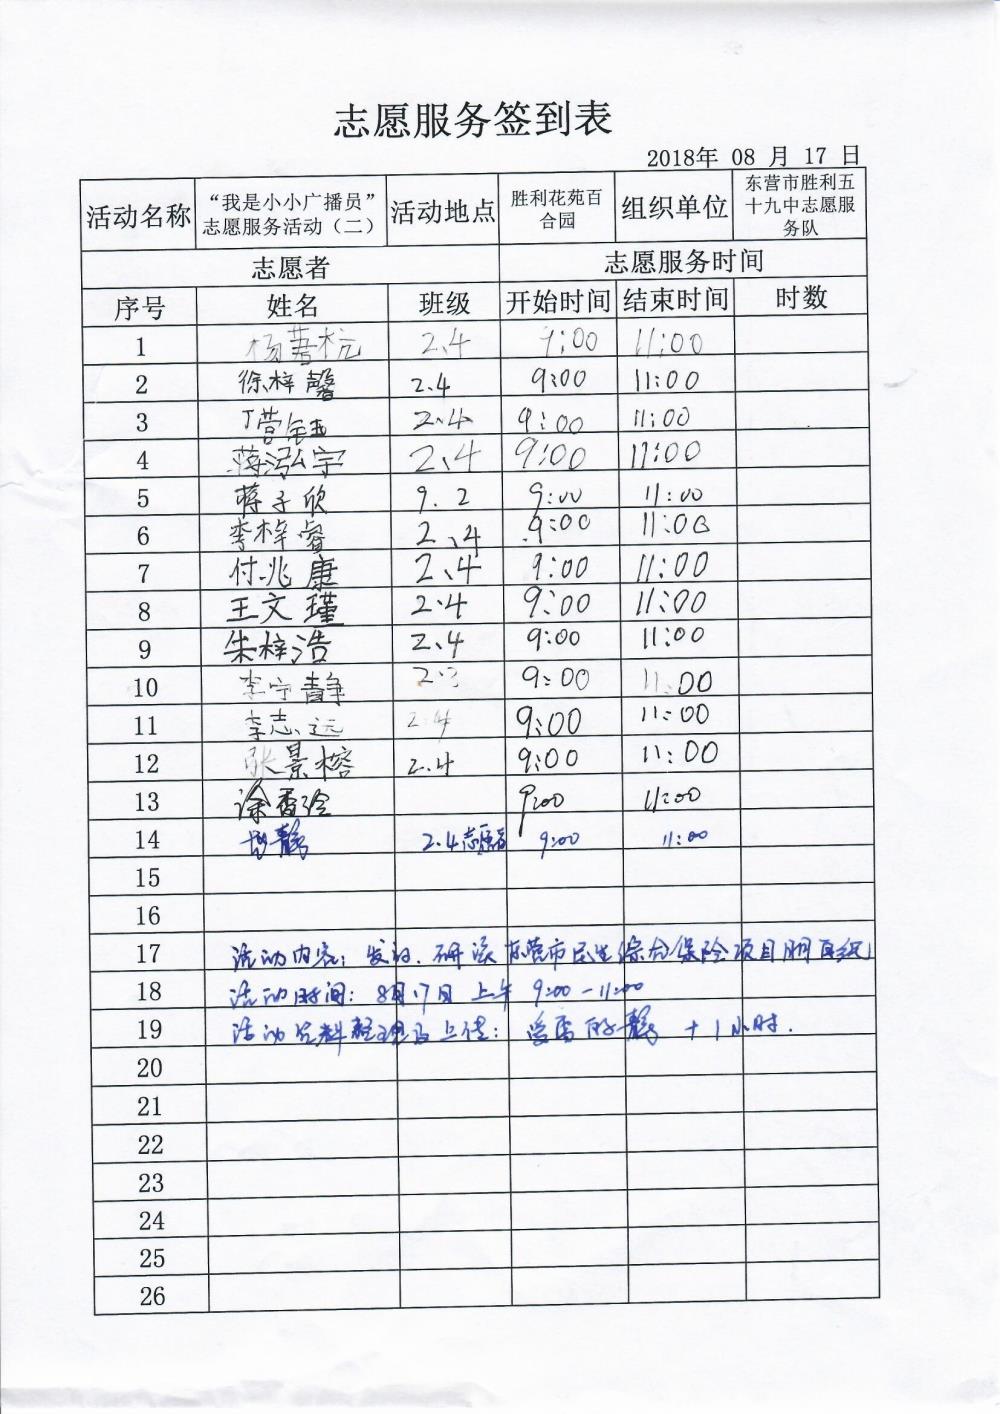 志愿服务签到表
2018年 08 月 17 日
活动名称 “我是小小广播员”志愿服务活动（二） 活动地点 胜利花苑百合园 组织单位 东营市胜利五十九中志愿服务队
志愿者 志愿服务时间
序号 姓名 班级 开始时间 结束时间 时数
1 杨 2.4 9:00 11:00
2 徐梓馨 2.4 9:00 11:00
3 丁营 2.4 9:00 11:00
4 蒋泓宇 2.4 9:00 11:00
5 蒋子欣 9.2 9:00 11:00
6 李梓睿 2.4 9:00 11:00
7 付兆康 2.4 9:00 11:00
8 王文瑾 2.4 9:00 11:00
9 朱梓浩 2.4 9:00 11:00
10 李宁静 2.3 9:00 11:00
11 李志远 2.4 9:00 11:00
12 张景榕 2.4 9:00 11:00
13 徐香玲 9:00 11:00
14 静 2.4志愿者 9:00 11:00
15
16
17 活动内容：发放、研读东营市民生综合保险项目明白纸
18 活动时间：8月17日 上午 9:00-11:00
19 活动资料整理及上传： 静 +1小时.
20
21
22
23
24
25
26